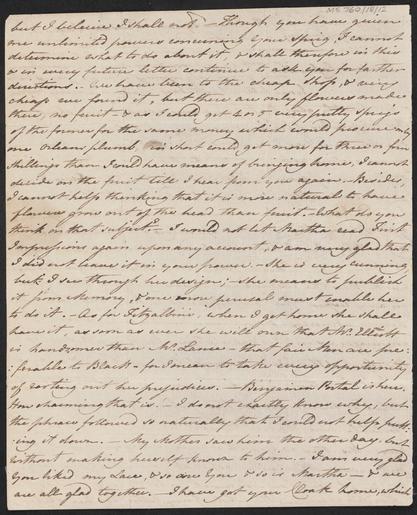 MS 260/10/12
but I believe I shall not. — Though you have given
me unlimited powers concerning Your Sprig, I cannot
determine what to do about it, & shall therefore in this
& in every future letter continue to ask you for farther
directions. — We have been to the cheap Shop, & very
cheap we found it, but there are only flowers made
there, no fruit — & as I could get 4 or 5 very pretty sprigs
of the former for the same money which would procure only
one Orleans plumb, in short could get more for three or four
Shillings than I could have means of bringing home, I cannot
decide on the fruit till I hear from you again. — Besides,
I cannot help thinking that it is more natural to have
flowers grow out of the head than fruit. — What do you
think on that subject? — I would not let Martha read First
Impressions again upon any account, & am very glad that
I did not leave it in your power. — She is very cunning,
but I see through her design; — she means to publish
it from Memory, & one more perusal must enable her
to do it. — As for Fitzalbini, when I get home she shall
have it, as soon as ever she will own that Mr. Elliott
is handsomer than Mr. Lance — that fair Men are pre-
:ferable to Black — for I mean to take every opportunity
of rooting out her prejudices. — Benjamin Portal is here.
How charming that is! — I do not exactly know why, but
the phrase followed so naturally that I could not help putt-
ing it down. — My Mother saw him the other day, but
without making herself known to him. — I am very glad
You liked my Lace, & so are You & so is Martha — & we
are all glad together. — I have got your Cloak home, which